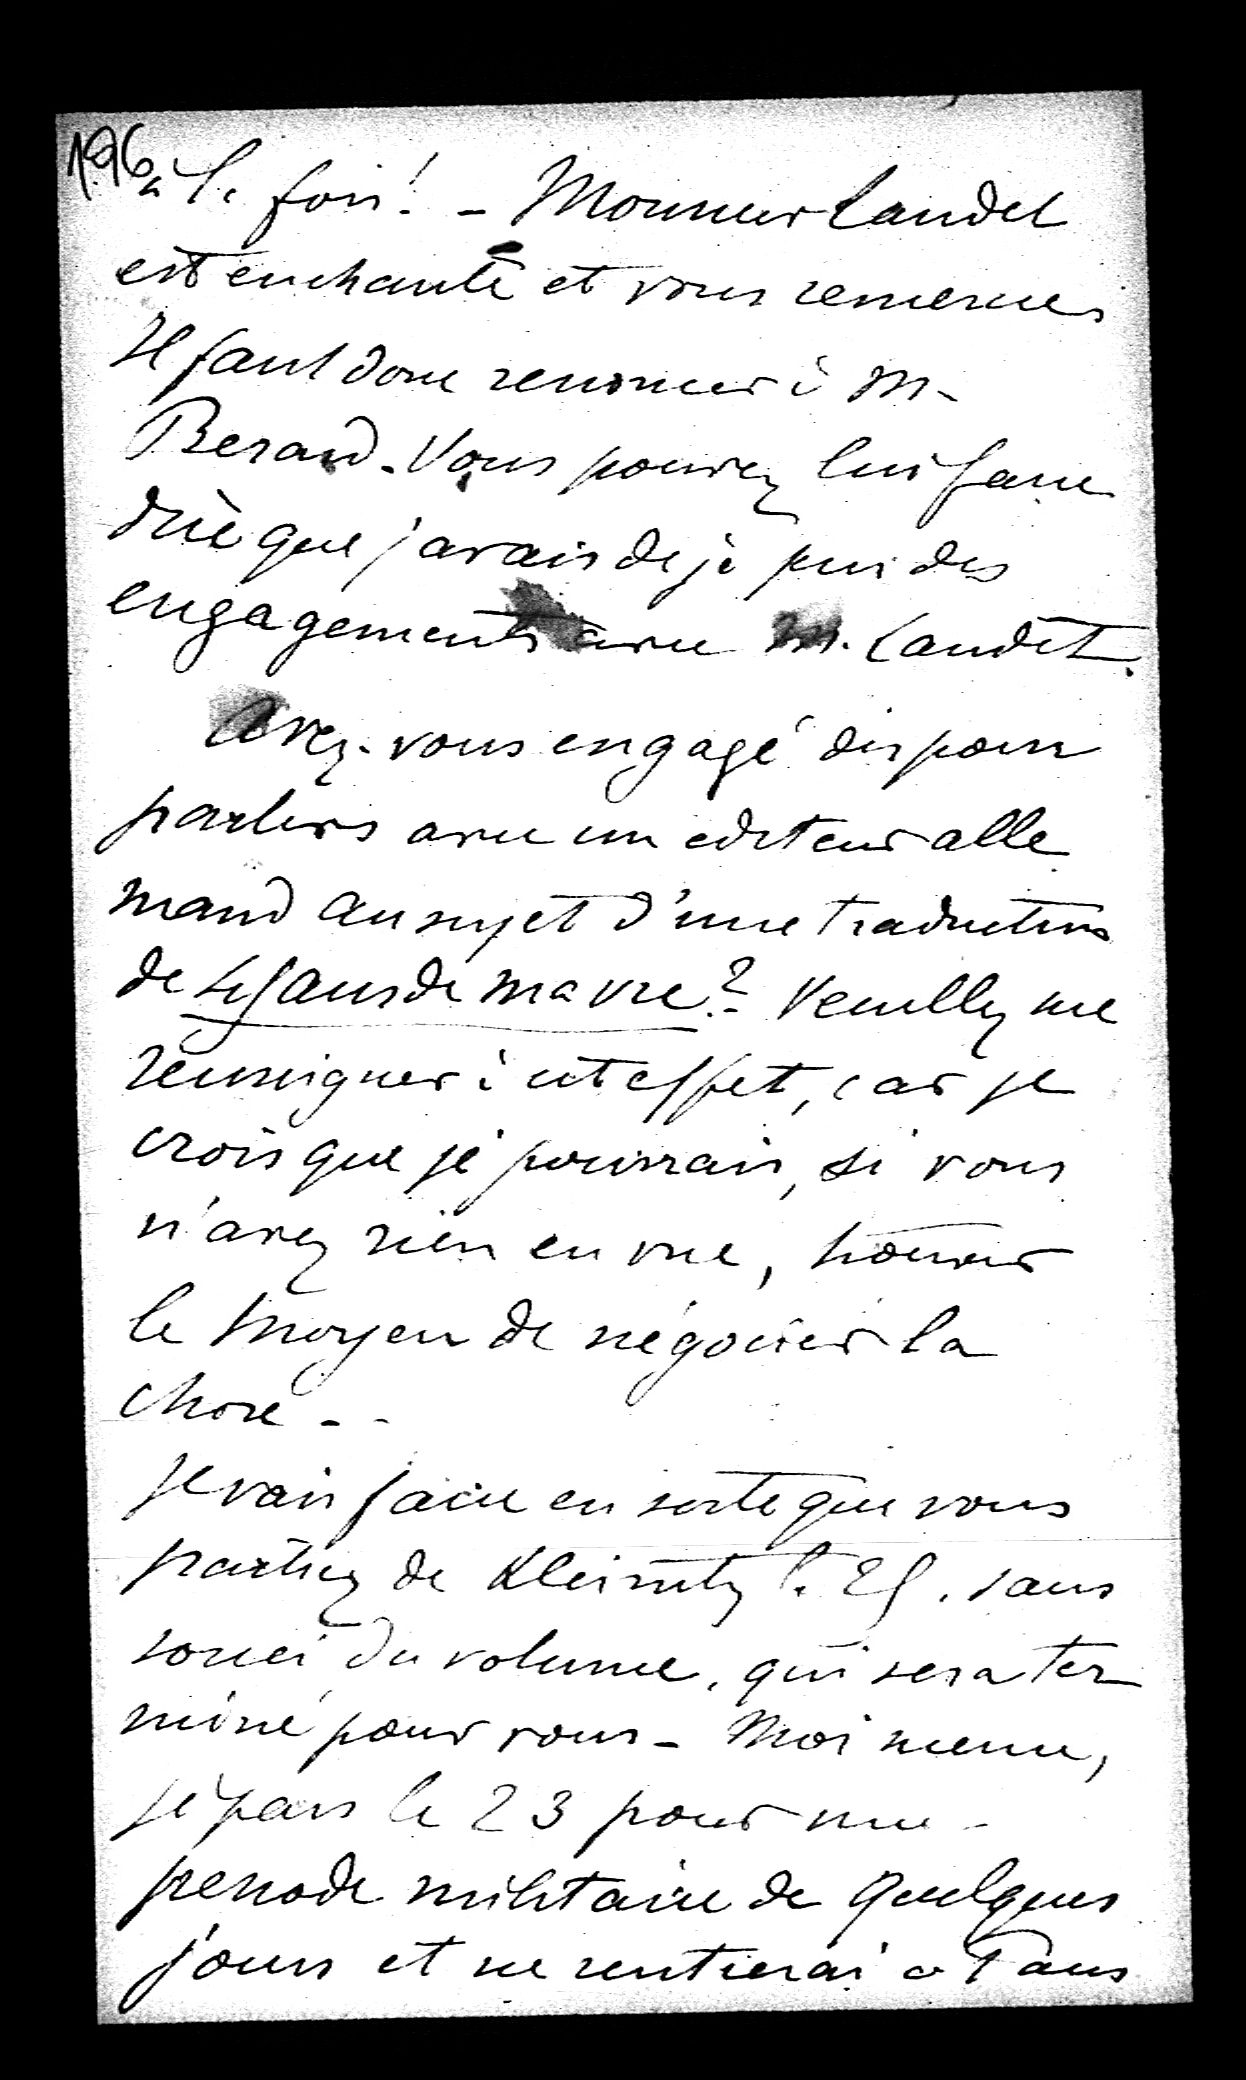 196
à la fois! - Monsieur Laudet
est enchanté et vous remercie
Il faut donc renoncer à M-
Berard. Vous pouvez lui faire
dire que j'avais déjà pris des
engagements avec M. Laudet.
Avez-vous engagé des pour
parlers avec un editeur alle
mand au sujet d'une traduction
de Le Gars de ma vie? Veuillez me
renseigner à cet effet, car je
crois que je pourrais, si vous
n'avez rien en vue, trouver
le moyen de négocier la
chose - -
Je vais faire en sorte que vous
partiez de le 25. sans
souci du volume, qui sera ter
miné pour vous - Moi meme,
je pars le 23 pour une -
periode militaire de quelques
jours et ne rentrerai à Paris